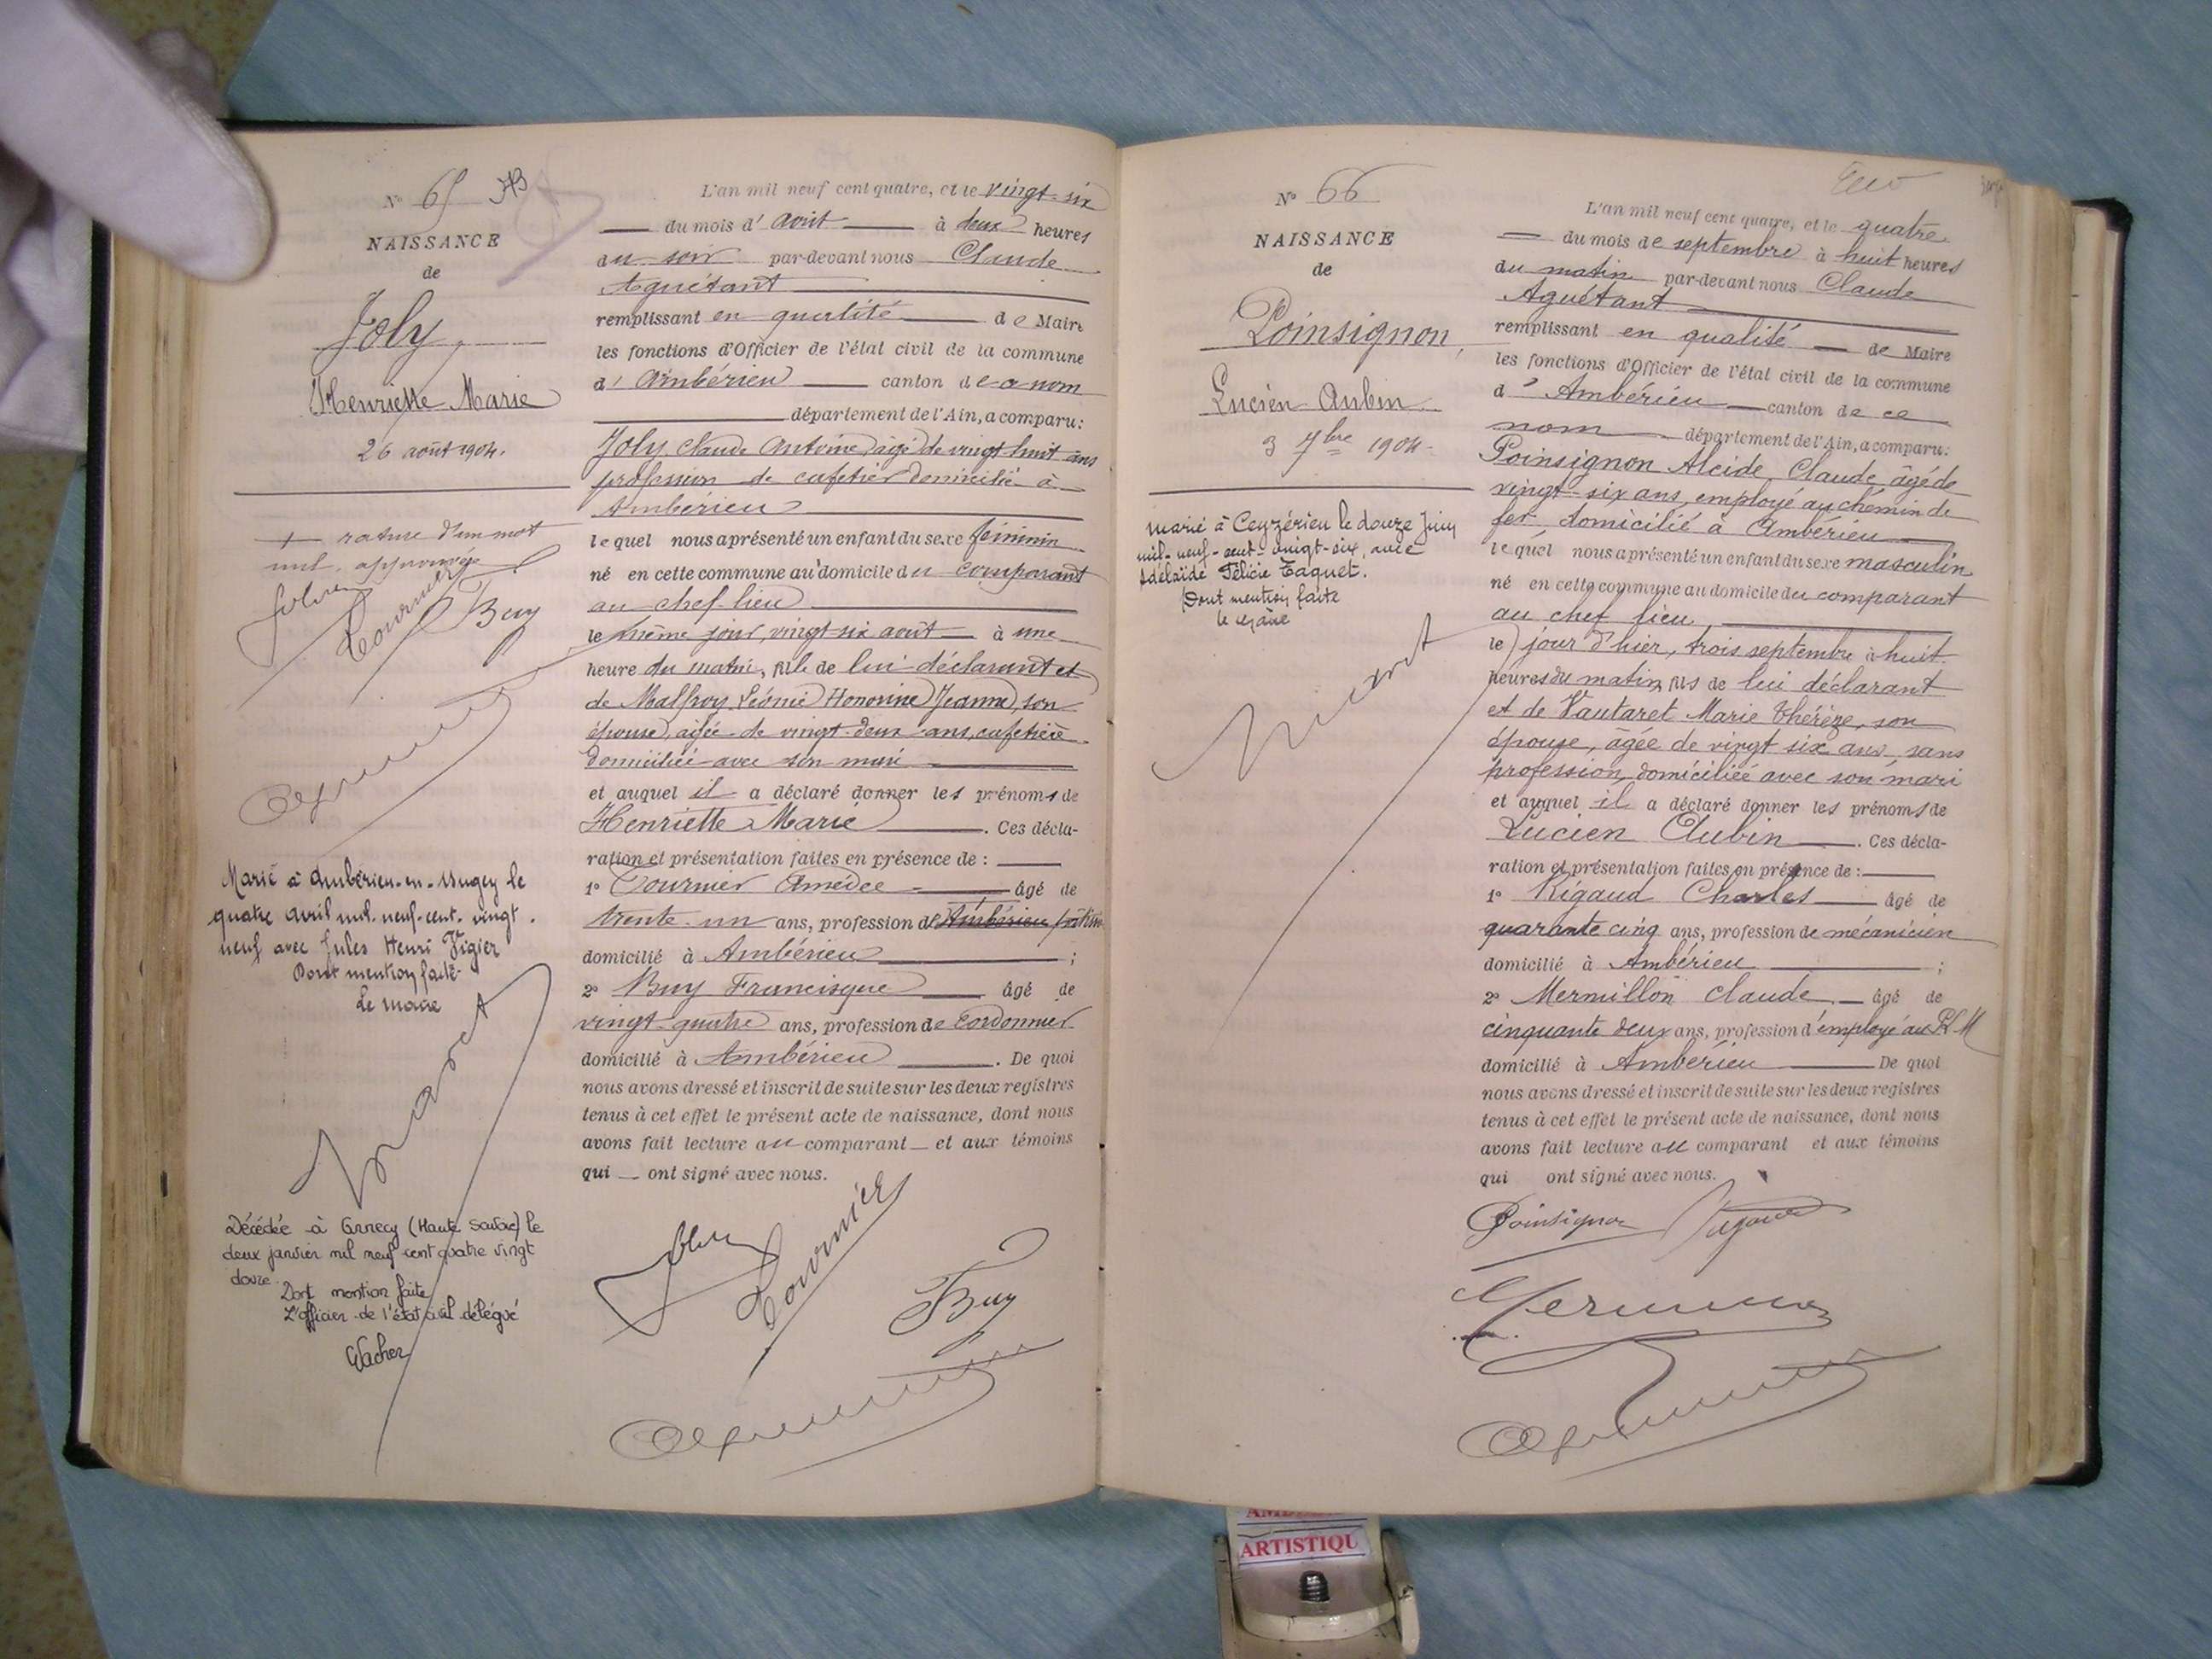 N° 65
NAISSANCE
de
Joly
Henriette Marie
26 août 1904.
+ rature d'un mot
nul, approuvée
Tournier
Buy
Marié à Ambérieu-en-Bugey le
quatre avril mil-neuf-cent-vingt-
neuf avec Jules Henri Vigier
Dont mention faite
Le maire
Décédée à Annecy (Haute Savoie) le
deux janvier mil neuf cent quatre vingt
douze.
Dont mention faite
L'officier de l'état civil délégué
L'an mil neuf cent quatre, et le vingt-six
du mois d'août à deux heures
du soir par-devant nous Claude
Aguétant
remplissant en qualité de Maire
les fonctions d'Officier de l'état civil de la commune
d'Ambérieu canton de ce nom
département de l'Ain, a comparu:
Joly Claude Antoine, âgé de vingt huit ans
profession de cafetier domicilié à
Ambérieu
lequel nous a présenté un enfant du sexe féminin
né en cette commune au domicile du comparant
au chef-lieu
le même jour, vingt-six août à une
heure du matin, fille de lui déclarant et
de Malfroy Léonie Honorine Jeanne, son
épouse, âgée de vingt-deux ans, cafetière
domiciliée avec son mari
et auquel il a déclaré donner les prénoms de
Henriette Marie . Ces décla-
ration et présentation faites en présence de :
1° Tournier Amédée âgé de
trente-un ans, profession de Ambérieu
domicilié à Ambérieu ;
2° Buy Francisque âgé de
vingt-quatre ans, profession de cordonnier
domicilié à Ambérieu . De quoi
nous avons dressé et inscrit de suite sur les deux registres
tenus à cet effet le présent acte de naissance, dont nous
avons fait lecture au comparant et aux témoins
qui ont signé avec nous.
Tournier
Buy
N° 66
NAISSANCE
de
Poinsignon
Lucien Aubin
3 7bre 1904
marié à Ceyzérieu le douze Juin
mil-neuf-cent-vingt-six, avec
Adélaïde Félicie Taquet.
Dont mention faite
Le Maire
L'an mil neuf cent quatre, et le quatre
du mois de septembre à huit heures
du matin par-devant nous Claude
Aguétant
remplissant en qualité de Maire
les fonctions d'Officier de l'état civil de la commune
d'Ambérieu canton de ce
nom département de l'Ain, a comparu:
Poinsignon Alcide Claude âgé de
vingt-six ans, employé au chemin de
fer, domicilié à Ambérieu
lequel nous a présenté un enfant du sexe masculin
né en cette commune au domicile du comparant
au chef lieu
le jour d'hier, trois septembre à huit
heures du matin, fils de lui déclarant
et de Vautaret Marie Thérèze, son
épouse, âgée de vingt six ans, sans
profession, domiciliée avec son mari
et auquel il a déclaré donner les prénoms de
Lucien Aubin . Ces décla-
ration et présentation faites en présence de :
1° Rigaud Charles âgé de
quarante cinq ans, profession de mécanicien
domicilié à Ambérieu ;
2° Mermillon Claude âgé de
cinquante deux ans, profession d'employé au PLM
domicilié à Ambérieu De quoi
nous avons dressé et inscrit de suite sur les deux registres
tenus à cet effet le présent acte de naissance, dont nous
avons fait lecture au comparant et aux témoins
qui ont signé avec nous.
Poinsignon
ARTISTIQU